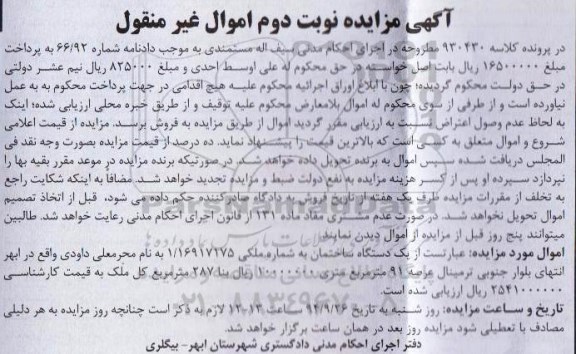 آگهی مزایده نوبت دوم اموال غیر منقول
در پرونده کلاسه ۹۳۰۴۳۰ مطروحه در اجرای احکام مدنی سیف اله مستمندی به موجب دادنامه شماره ۶۶/۹۲ به پرداخت
مبلغ ۱۶۵۰۰۰۰۰ ریال بابت اصل خواسته در حق محکوم له علی اوسط احدی و مبلغ ۸۲۵۰۰۰ ریال نیم عشر دولتی
در حق دولت محکوم گردیده؛ چون با ابلاغ اوراق اجرائیه محکوم علیه هیچ اقدامی در جهت پرداخت محکوم به به عمل
نیاورده است و از طرفی از سوی محکوم له اموال بلامعارض محکوم علیه توقیف و از طریق خبره محلی ارزیابی شده؛ اینک
به لحاظ عدم وصول اعتراض نسبت به ارزیابی مقرر گردید اموال از طریق مزایده به فروش برسد. مزایده از قیمت اعلامی
شروع و اموال متعلق به کسی است که بالاترین قیمت را پیشنهاد نماید. ده درصد از قیمت مزایده بصورت وجه نقد فی
المجلس دریافت شده سپس اموال به برنده تحویل داده خواهد شد. در صورتیکه برنده مزایده در موعد مقرر بقیه بها را
نپردازد سپرده او پس از کسر هزینه مزایده به نفع دولت ضبط و مزایده تجدید خواهد شد. مضافا به اینکه شکایت راجع
به تخلف از مقررات مزایده ظرف یک هفته از تاریخ فروش به دادگاه صادرکننده حکم داده می شود، قبل از اتخاذ تصمیم
اموال تحویل نخواهد شد. در صورت عدم مشتری مفاد ماده ۱۳۱ از قانون اجرای احکام مدنی رعایت خواهد شد. طالبین
میتوانند پنج روز قبل از مزایده از اموال دیدن نمایند.
اموال مورد مزایده: عبارتست از یک دستگاه ساختمان به شماره ملکی ۱/۱۶۹۱۷۲۷۵ به نام محرمعلی داودی واقع در ابهر
انتهای بلوار جنوبی ترمینال عرصه ۹۱ مترمربع متری ریال بنا ۲۸۷ مترمربع کل ملک به قیمت کارشناسی
۲۵۴۱۰۰۰۰۰۰ ریال ارزیابی شده است.
تاریخ و ساعت مزایده: روز شنبه به تاریخ ۹۴/۹/۲۶ ساعت ۱۳-۱۲ لازم به ذکر است چنانچه روز مزایده به هر دلیلی
مصادف با تعطیلی شود مزایده روز بعد در همان ساعت برگزار خواهد شد.
دفتر اجرای احکام مدنی دادگستری شهرستان ابهر- بیگلری